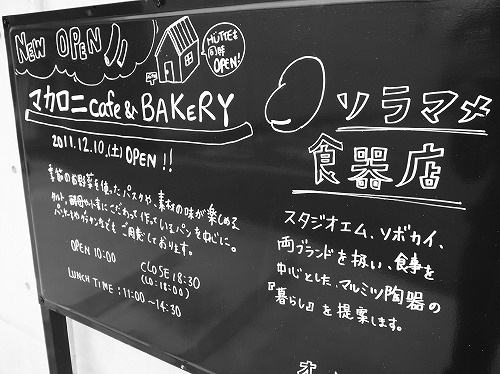 NEW OPEN!!
HÜTTEも
同時
OPEN!
マカロニ cafe & BAKERY
2011.12.10.(土) OPEN!!
季節のお野菜を使ったパスタや、素材の味が楽しめる
タルト、酵母や小麦にこだわって作っているパンを中心に。
もご用意しております。
OPEN 10:00
CLOSE 18:30
(LO:18:00)
LUNCH TIME : 11:00〜14:30
ソラマメ
食器店
スタジオエム、ソボカイ、
両ブランドを扱い、食事を
中心とした、マルミツ陶器の
『暮らし』を提案します。